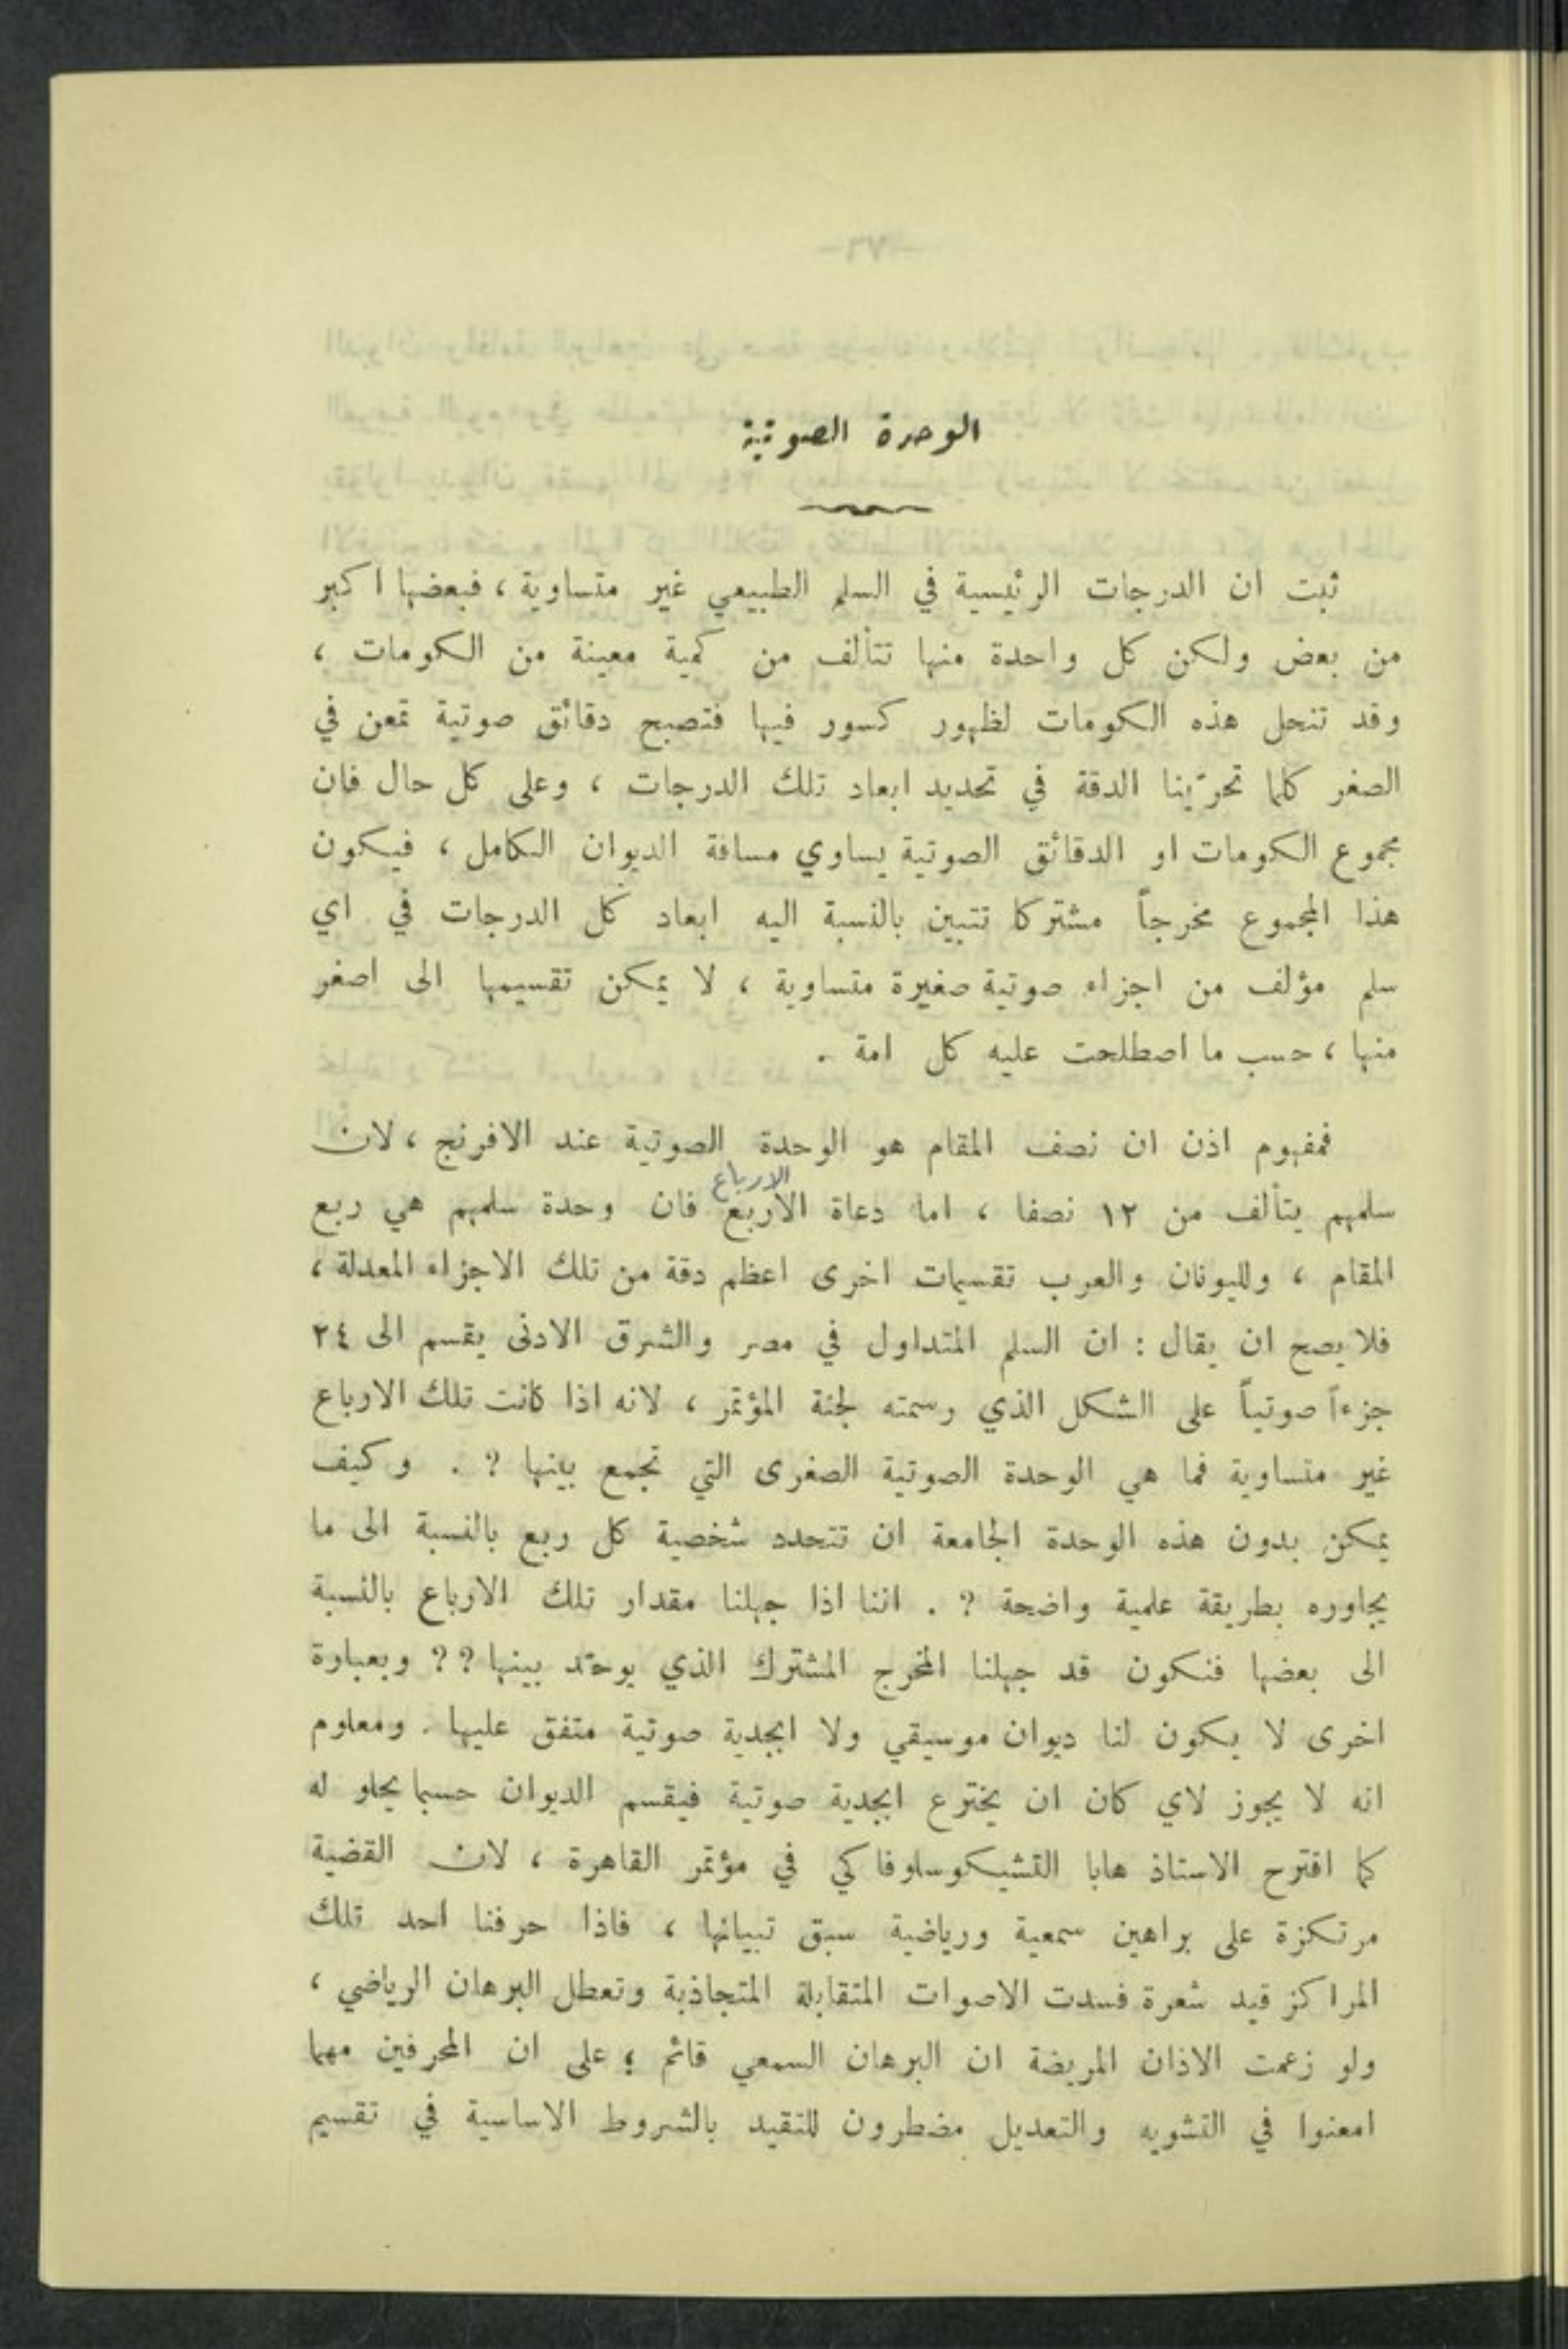 الوحدة الصوتية
ثبت ان الدرجات الرئيسية في السلم الطبيعي غير متساوية ، فبعضها اكبر
من بعض ولكن كل واحدة منها تتألف من كمية معينة من الكومات ،
وقد تنحل هذه الكومات لظهور كسور فيها فتصبح دقائق صوتية تمعن في
الصغر كلما تحرّينا الدقة في تحديد ابعاد تلك الدرجات ، وعلى كل حال فان
مجموع الكومات او الدقائق الصوتية يساوي مسافة الديوان الكامل ، فيكون
هذا المجموع مخرجاً مشتركا تتبين بالنسبة اليه ابعاد كل الدرجات في اي
سلم مؤلف من اجزاء صوتية صغيرة متساوية ، لا يمكن تقسيمها الى اصغر
منها ، حسب ما اصطلحت عليه كل امة .
فمفهوم اذن ان نصف المقام هو الوحدة الصوتية عند الافرنج ، لان
الارباع
سلمهم يتألف من ١٢ نصفا ، اما دعاة الاربع فان وحدة سلمهم هي ربع
المقام ، ولليونان والعرب تقسيمات اخرى اعظم دقة من تلك الاجزاء المعدلة ،
فلا يصح ان يقال : ان السلم المتداول في مصر والشرق الادنى يقسم الى ٢٤
جزءاً صوتياً على الشكل الذي رسمته لجنة المؤتمر ، لانه اذا كانت تلك الارباع
غير متساوية فما هي الوحدة الصوتية الصغرى التي تجمع بينها ? . وكيف
يمكن بدون هذه الوحدة الجامعة ان تتحدد شخصية كل ربع بالنسبة الى ما
يجاوره بطريقة علمية واضحة ? . اننا اذا جهلنا مقدار تلك الارباع بالنسبة
الى بعضها فنكون قد جهلنا المخرج المشترك الذي يوحّد بينها ? ? وبعبارة
اخرى لا يكون لنا ديوان موسيقي ولا ابجدية صوتية متفق عليها . ومعلوم
انه لا يجوز لاي كان ان يخترع ابجدية صوتية فيقسم الديوان حسبما يحلو له
كما اقترح الاستاذ هابا التشيكوسلوفاكي في مؤتمر القاهرة ، لان القضية
مرتكزة على براهين سمعية ورياضية سبق تبيانها ، فاذا حرفنا احد تلك
المراكز قيد شعرة فسدت الاصوات المتقابلة المتجاذبة وتعطل البرهان الرياضي ،
ولو زعمت الاذان المريضة ان البرهان السمعي قائم ؛ على ان المحرفين مهما
امعنوا في التشويه والتعديل مضطرون للتقيد بالشروط الاساسية في تقسيم